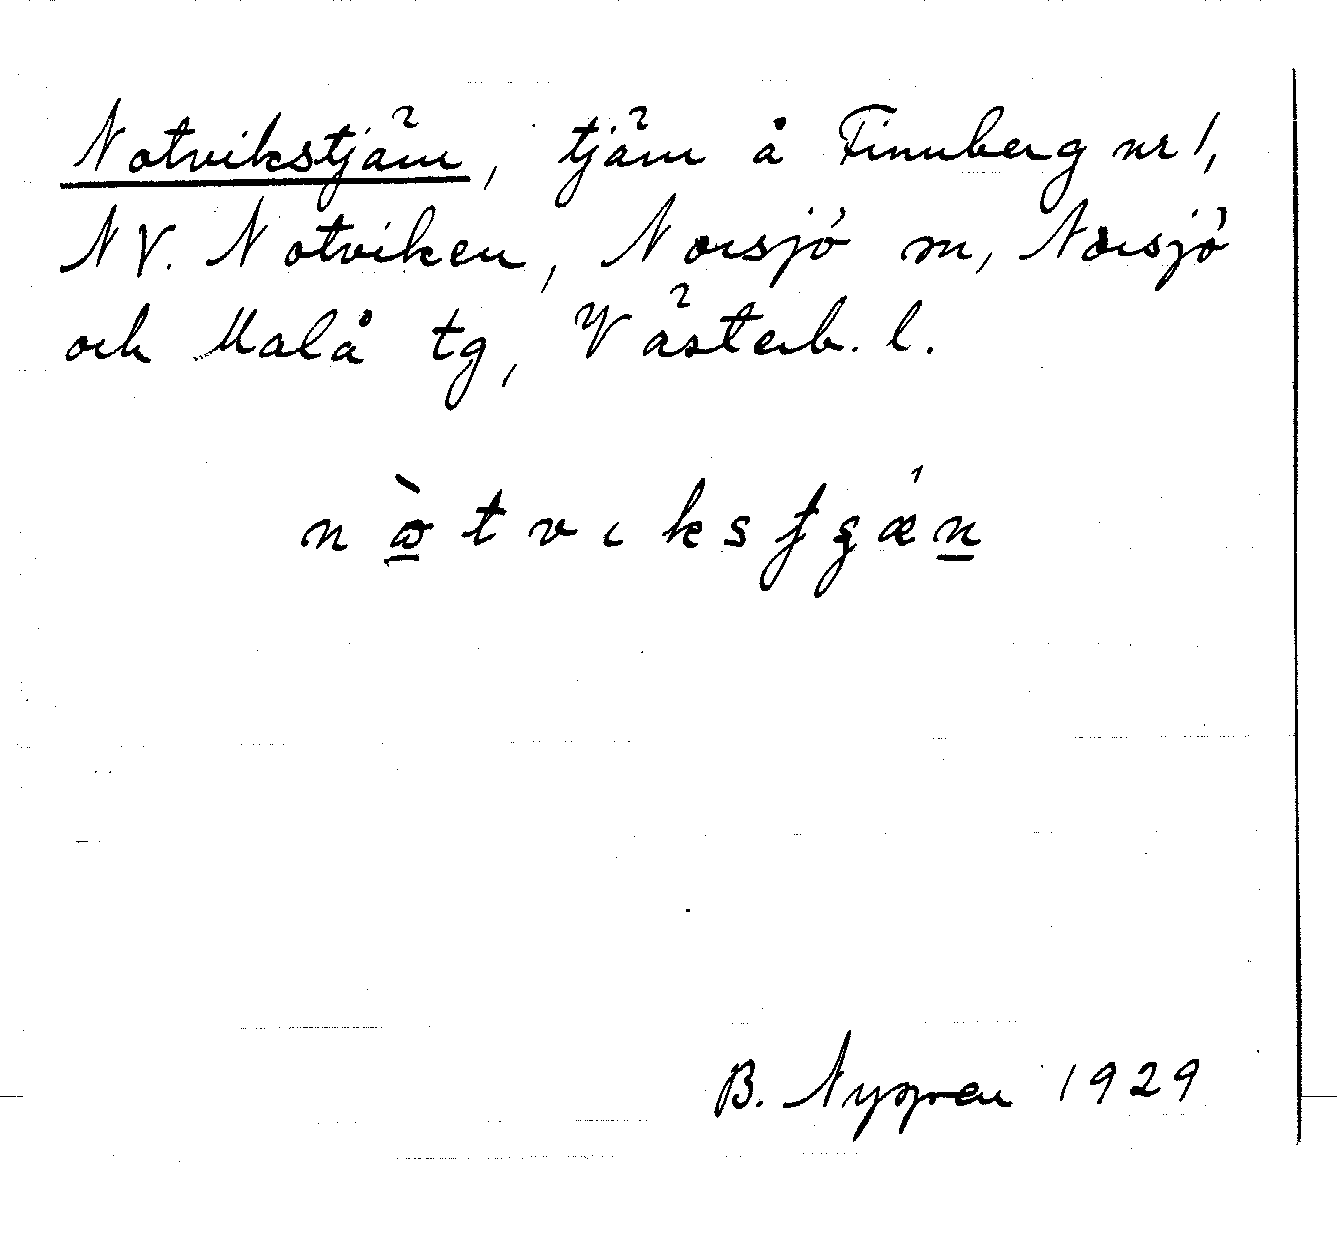 Notvikstjärn, tjärn å Finnberg nr 1,
NV. Notviken, Norsjö sn, Norsjö
och Malå tg, Västerb. l.
B. Nygren 1929